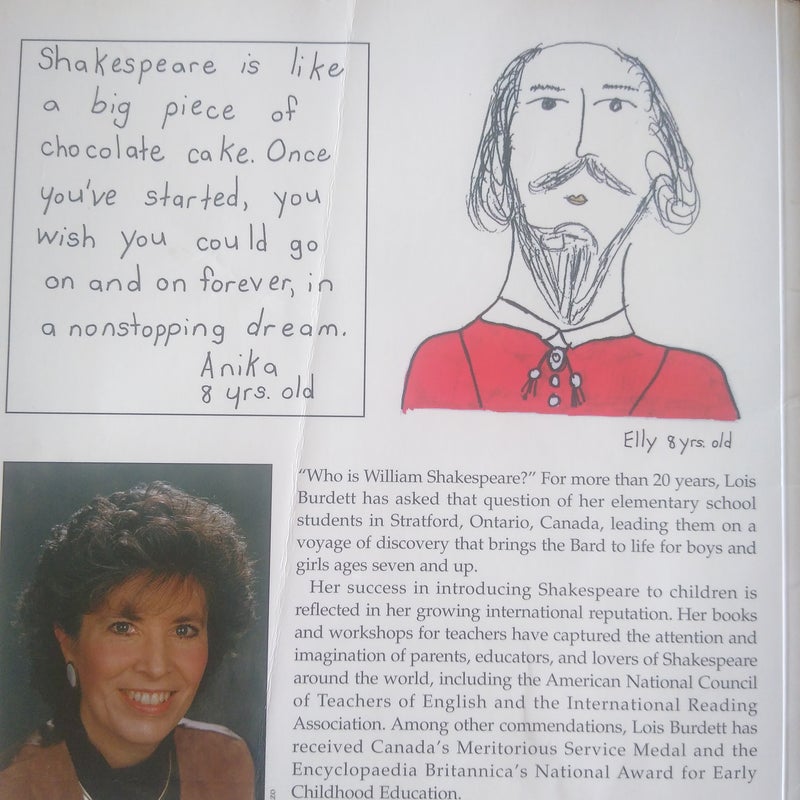 Shakespeare is like
a big piece of
chocolate cake. Once
you've started, you
wish you could go
on and on forever, in
a nonstopping dream.
Anika
8 yrs. old
Elly 8 yrs. old
“Who is William Shakespeare?” For more than 20 years, Lois
Burdett has asked that question of her elementary school
students in Stratford, Ontario, Canada, leading them on a
voyage of discovery that brings the Bard to life for boys and
girls ages seven and up.
Her success in introducing Shakespeare to children is
reflected in her growing international reputation. Her books
and workshops for teachers have captured the attention and
imagination of parents, educators, and lovers of Shakespeare
around the world, including the American National Council
of Teachers of English and the International Reading
Association. Among other commendations, Lois Burdett has
received Canada’s Meritorious Service Medal and the
Encyclopaedia Britannica’s National Award for Early
Childhood Education.